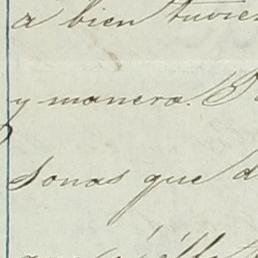 á bien tuvier
y manera. P
sonas que d